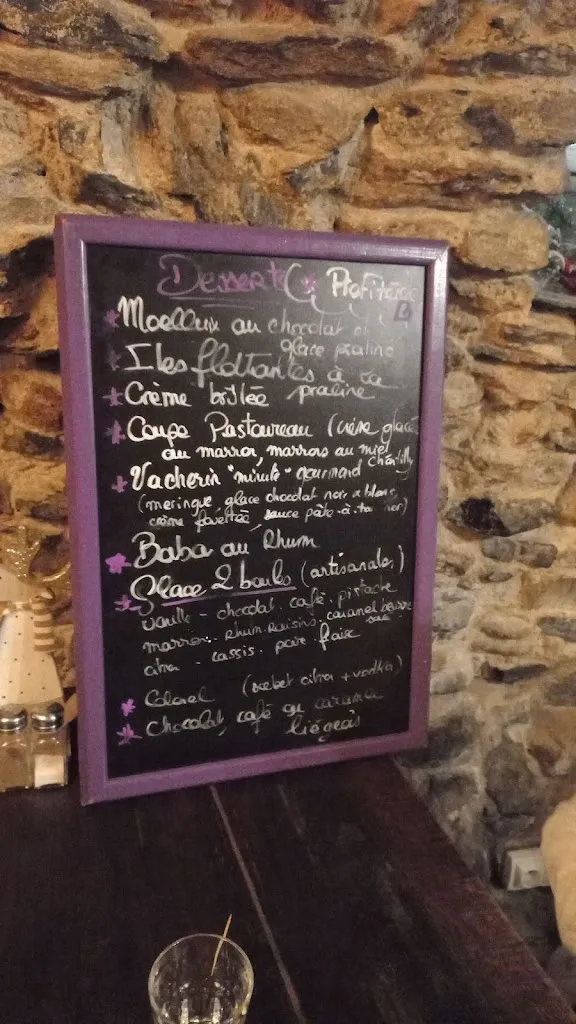 Desserts Profiterole
Moelleux au chocolat et
glace praline
Iles flottantes à la
praline
Crème brûlée
Coupe Pastoureau (crème glacée
au marron, marrons au miel
chantilly
Vacherin "minute" gourmand
(meringue glace chocolat noir & blanc,
crème fouettée, sauce pâte à tartiner)
Baba au Rhum
Glace 2 boules (artisanales)
vanille - chocolat. café. pistache
marron. rhum. Raisins. caramel beurre salé
citron - cassis. poire. fraise
Colonel (sorbet citron + vodka)
Chocolat, café ou caramel
liégeois